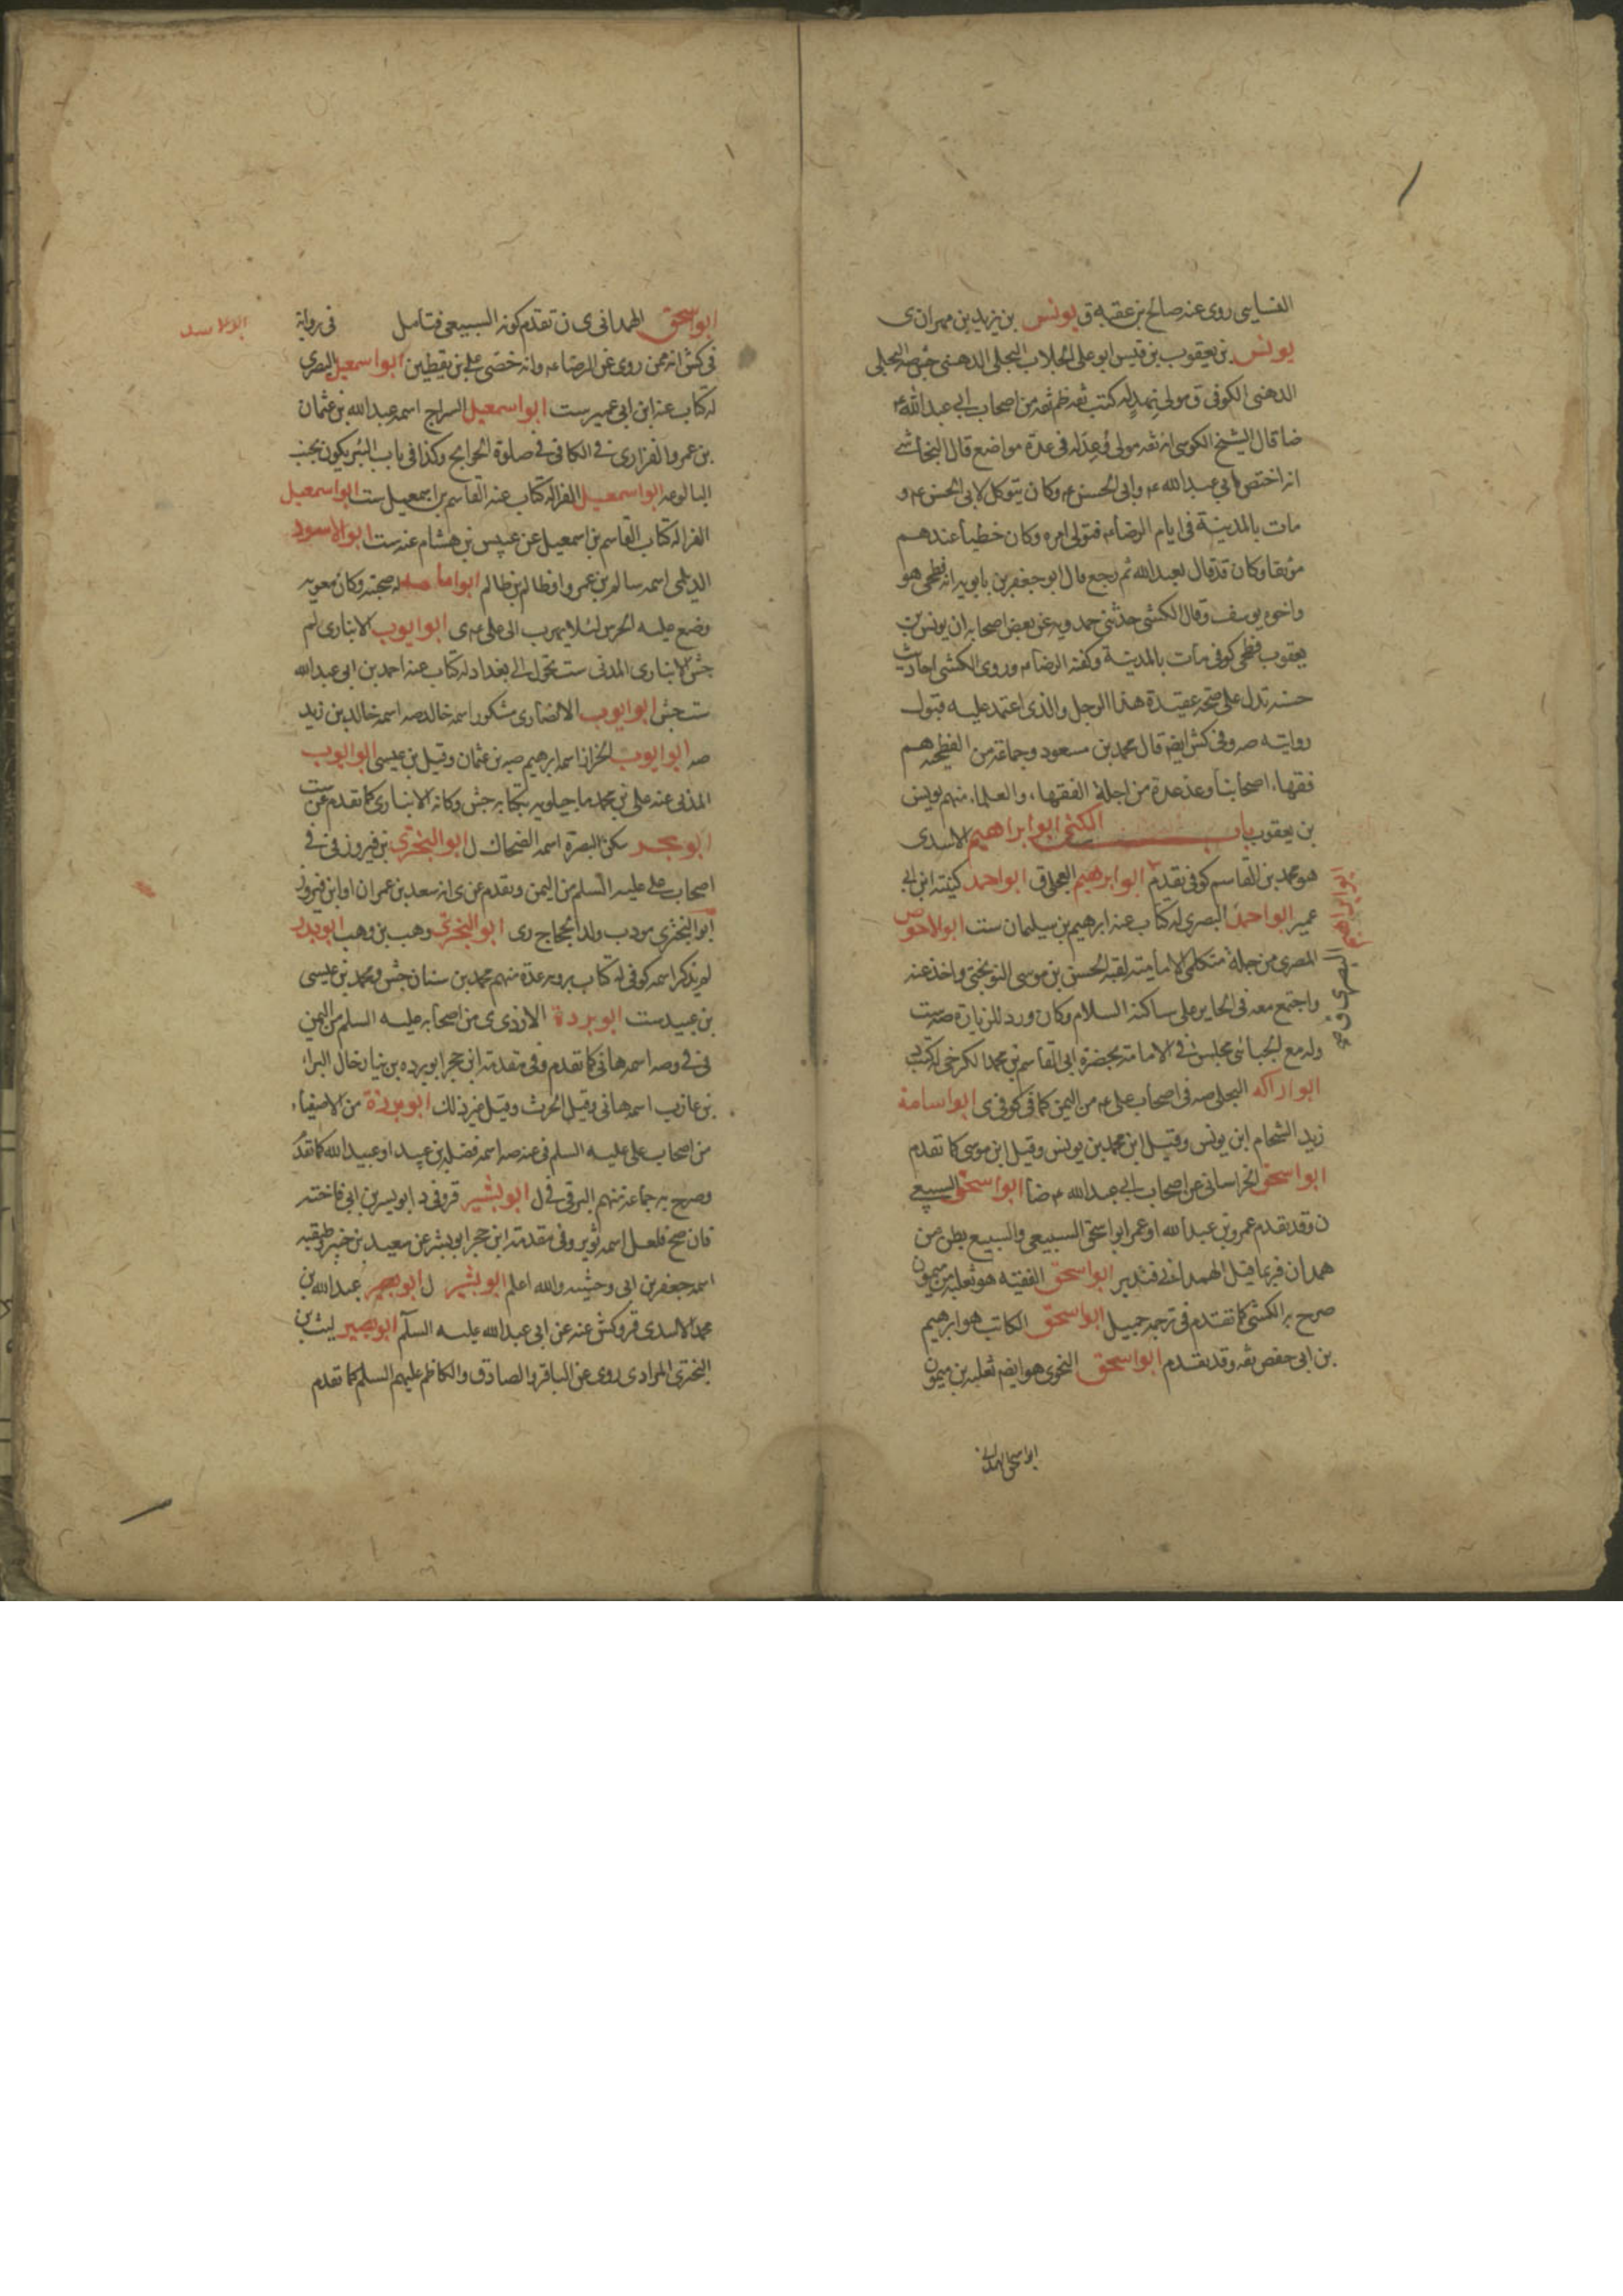 روى عنه صالح بن عقبه ق يونس بن يزيد بن مهران ى
يونس بن يعقوب بن قيس ابو على الجلاب البجلى الدهنى جش صه البجلى
الدهنى الكوفى ق مولى نهد له كتب ثقه ظم ثقه من اصحاب ابى عبدالله ع
ضا قال الشيخ الطوسى انه ثقه مولى فى عدة مواضع قال النجاشى
انه اختص بابى عبدالله ع وابى الحسن ع وكان يتوكل لابى الحسن ع و
مات بالمدينة فى ايام الرضا ع فتولى امره وكان خطيا عندهم
موثقا وكان قد قال بعبدالله ثم رجع قال ابو جعفر بن بابويه انه فطحى هو
واخوه يوسف وقال الكشى حدثنى حمدويه عن بعض اصحابه ان يونس بن
يعقوب فطحى كوفى مات بالمدينة وكفنه الرضا ع وروى الكشى احاديث
حسنه تدل على صحة عقيدة هذا الرجل والذى اعتمد عليه قبول
روايته صه وفى كش ايضا قال محمد بن مسعود وجماعة من الفطحيه هم
فقهاء اصحابنا وعد عدة من اجلة الفقهاء والعلماء منهم يونس
بن يعقوب باب الكنى ابو ابراهيم الاسدى
هو محمد بن القاسم كوفى تقدم ابو ابرهيم العجلى ق ابو احمد كنيته ابن ابى
عمير ابو احمد البصرى له كتاب عنه ابرهيم بن سليمان ست ابو الاحوص
المصرى من جملة متكلمى الامامية لقيه الحسن بن موسى النوبختى واخذ عنه
واجتمع معه فى الحاير على ساكنه السلام وكان ورد للزيارة صه ست
وله مع الجبائى مجلس فى الامامة بحضرة ابى القاسم بن محمد الكرخى له كتب
ابو اراكه البجلى صه فى اصحاب على ع من اليمن كما فى كوفى ى ابو اسامة
زيد الشحام ابن يونس وقيل ابن محمد بن يونس وقيل ابن موسى كما تقدم
ابو اسحق الخراسانى من اصحاب ابى عبدالله ع ضا ابو اسحق السبيعى
ن وقد تقدم عمرو بن عبدالله او عمر ابو اسحق السبيعى والسبيع بطن من
همدان فربما قيل الهمدانى فتدبر ابو اسحق الفقيه هو ثعلبه بن ميمون
صرح به الكشى كما تقدم فى ترجمة جميل ابو اسحق الكاتب هو ابرهيم
بن ابى حفص ثقه وقد تقدم ابو اسحق النحوى هو ايضا ثعلبه بن ميمون
ابو اسحق الهمدانى
ابو ابراهيم
البصرى ق
ابو اسحق الهمدانى ى ن تقدم كونه السبيعى فتامل فى رواية
فى كش انه ممن روى عن الرضا ع وانه خصى على بن يقطين ابو اسمعيل البصرى
له كتاب عنه ابن ابى عمير ست ابو اسمعيل السراج اسمه عبدالله بن عثمان
بن عمرو الفزارى فى الكافى فى صلوة الحوايج وكذا فى باب البئر يكون بجنب
البالوعه ابو اسمعيل الفرا له كتاب عنه القاسم بن اسمعيل ست ابو اسمعيل
الفرا له كتاب القاسم بن اسمعيل عن عبيس بن هشام عنه ست ابو الاسود
الديلمى اسمه سالم بن عمرو او ظالم بن ظالم ابو امامه له صحبه وكان معويه
وضع عليه الحرس لئلا يهرب الى على ع ى ابو ايوب الانبارى لم
جش الانبارى المدنى ست تحول الى بغداد له كتاب عنه احمد بن ابى عبدالله
ست جش ابو ايوب الانصارى مشكور اسمه خالد صه اسمه خالد بن زيد
صه ابو ايوب الخراز اسمه ابرهيم صه بن عثمان وقيل بن عيسى ابو ايوب
المدنى عنه على بن محمد ماجيلويه بكتابه جش وكانه الانبارى كما تقدم عن ست
ابو بحر سكن البصرة اسمه الضحاك ل ابو البخترى بن فيروز فى
اصحاب على عليه السلم من اليمن وتقدم عن ى انه سعد بن عمران او ابن فيروز
ابو البخترى مودب ولد الحجاج رى ابو البخترى وهب بن وهب ابو بدر
لم يذكر اسمه كوفى له كتاب يرويه عدة منهم محمد بن سنان جش ومحمد بن عيسى
بن عبيد ست ابو بردة الازدى ى من اصحابه عليه السلم من اليمن
فى صه اسمه هانى كما تقدم وفى مقدمة ابن حجر ابو برده بن نيار خال البراء
بن عازب اسمه هانى وقيل الحرث وقيل غير ذلك ابو برزة من الاصفياء
من اصحاب على عليه السلم فى عنه صه اسمه فضله بن عبيد او عبيدالله كما تقدم
وصرح به جماعة منهم البرقى فى ل ابو بشير ق وفى د ابو يسر بن ابى فاخته
فان صح فلعل اسمه ثوير وفى مقدمة ابن حجر ابو بشر عن سعيد بن جبير وطبقته
اسمه جعفر بن ابى وحشيه والله اعلم ابو بشير ل ابو بصير عبدالله بن
محمد الاسدى قر وكش عنه عن ابى عبدالله عليه السلم ابو بصير ليث بن
البخترى المرادى روى عن الباقر والصادق والكاظم عليهم السلم كما تقدم